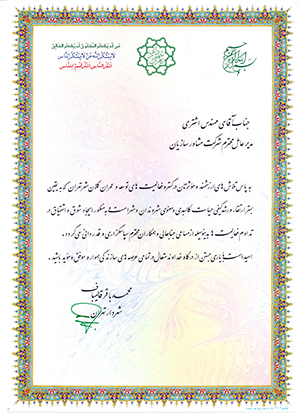 لایشکر الله من لایشکر الناس
جناب آقای مهندس اشتری
مدیر عامل محترم شرکت مشاور سازیان
به پاس تلاش های ارزشمند و مؤثرتان در گستره فعالیت های توسعه و عمران کلان شهر تهران که به یقین
بستر ارتقاء و رشد کیفی حیات کالبدی و معنوی شهروندان و شهر است به منظور ایجاد شوق و اشتیاق در
تداوم فعالیت ها بدینوسیله از مساعی جنابعالی و همکاران محترم سپاسگزاری و قدردانی می گردد.
امید است با یاری جستن از درگاه خداوند متعال در تمامی عرصه های سازندگی همواره موفق و مؤید باشید.
محمد باقر قالیباف
شهردار تهران